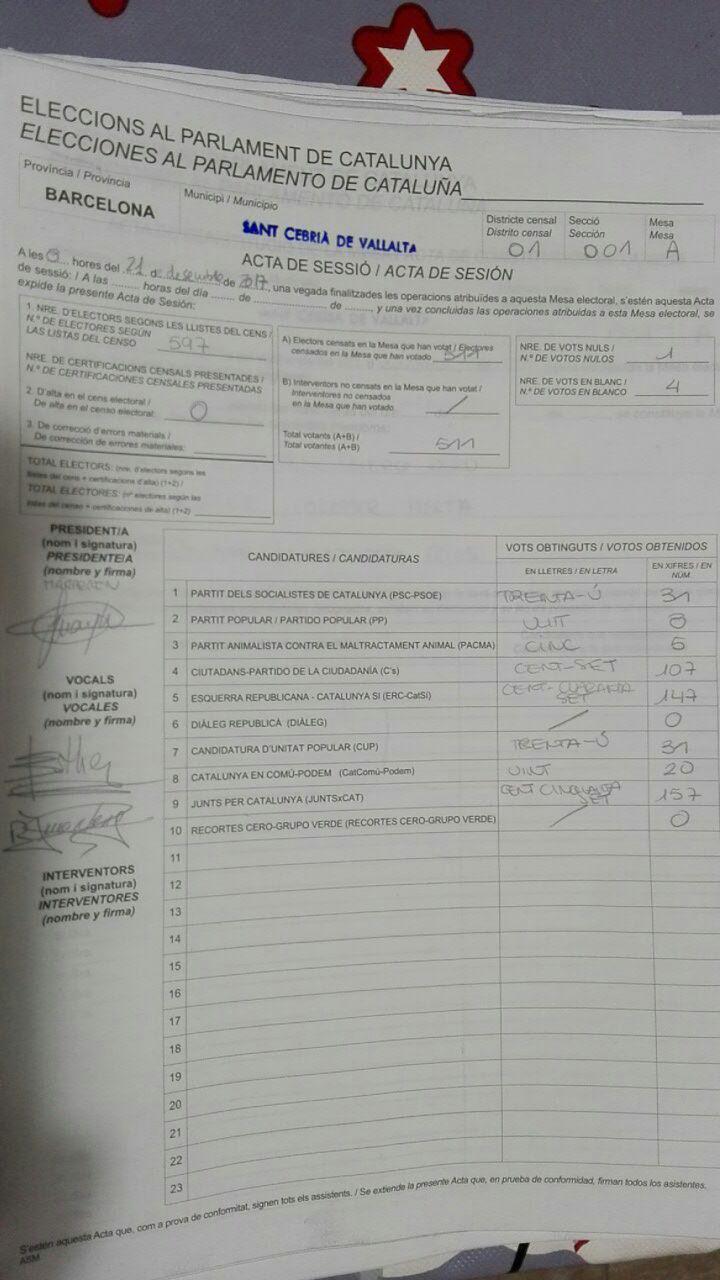 ELECCIONS AL PARLAMENT DE CATALUNYA
ELECCIONES AL PARLAMENTO DE CATALUÑA
Província / Provincia
BARCELONA
Municipi / Municipio
SANT CEBRIÀ DE VALLALTA
Districte censal
Distrito censal
01
Secció
Sección
001
Mesa
Mesa
A
ACTA DE SESSIÓ / ACTA DE SESIÓN
A les 9 hores del 21 d desembre de 2017, una vegada finalitzades les operacions atribuïdes a aquesta Mesa electoral, s'estén aquesta Acta
de sessió: / A las ........ horas del día ........ de ........ de ........ y una vez concluidas las operaciones atribuidas a esta Mesa electoral, se
expide la presente Acta de Sesión:
1. NRE. D'ELECTORS SEGONS LES LLISTES DEL CENS /
N.º DE ELECTORES SEGÚN
LAS LISTAS DEL CENSO 597
NRE. DE CERTIFICACIONS CENSALS PRESENTADES /
N.º DE CERTIFICACIONES CENSALES PRESENTADAS
2. D'alta en el cens electoral /
De alta en el censo electoral: 0
3. De correcció d'errors materials /
De corrección de errores materiales:
TOTAL ELECTORS: (nre. d'electors segons les
llistes del cens + certificacions d'alta) (1+2) /
TOTAL ELECTORES: (nº electores según las
listas del censo + certificaciones de alta) (1+2)
A) Electors censats en la Mesa que han votat / Electores
censados en la Mesa que han votado 511
B) Interventors no censats en la Mesa que han votat /
Interventores no censados
en la Mesa que han votado /
Total votants (A+B) /
Total votantes (A+B) 511
NRE. DE VOTS NULS /
N.º DE VOTOS NULOS 1
NRE. DE VOTS EN BLANC /
N.º DE VOTOS EN BLANCO 4
PRESIDENT/A
(nom i signatura)
PRESIDENTE/A
(nombre y firma)
VOCALS
(nom i signatura)
VOCALES
(nombre y firma)
Esther
INTERVENTORS
(nom i signatura)
INTERVENTORES
(nombre y firma)
CANDIDATURES / CANDIDATURAS
VOTS OBTINGUTS / VOTOS OBTENIDOS
EN LLETRES / EN LETRA
EN XIFRES / EN NÚM.
1 PARTIT DELS SOCIALISTES DE CATALUNYA (PSC-PSOE) TRENTA-Ú 31
2 PARTIT POPULAR / PARTIDO POPULAR (PP) VUIT 8
3 PARTIT ANIMALISTA CONTRA EL MALTRACTAMENT ANIMAL (PACMA) CINC 5
4 CIUTADANS-PARTIDO DE LA CIUDADANÍA (C's) CENT-SET 107
5 ESQUERRA REPUBLICANA - CATALUNYA SÍ (ERC-CatSí) CENT-QUARANTA SET 147
6 DIÀLEG REPUBLICÀ (DIÀLEG) / 0
7 CANDIDATURA D'UNITAT POPULAR (CUP) TRENTA-Ú 31
8 CATALUNYA EN COMÚ-PODEM (CatComú-Podem) VINT 20
9 JUNTS PER CATALUNYA (JUNTSxCAT) CENT CINQUANTA SET 157
10 RECORTES CERO-GRUPO VERDE (RECORTES CERO-GRUPO VERDE) / 0
11
12
13
14
15
16
17
18
19
20
21
22
23
S'estén aquesta Acta que, com a prova de conformitat, signen tots els assistents. / Se extiende la presente Acta que, en prueba de conformidad, firman todos los asistentes.
ASM